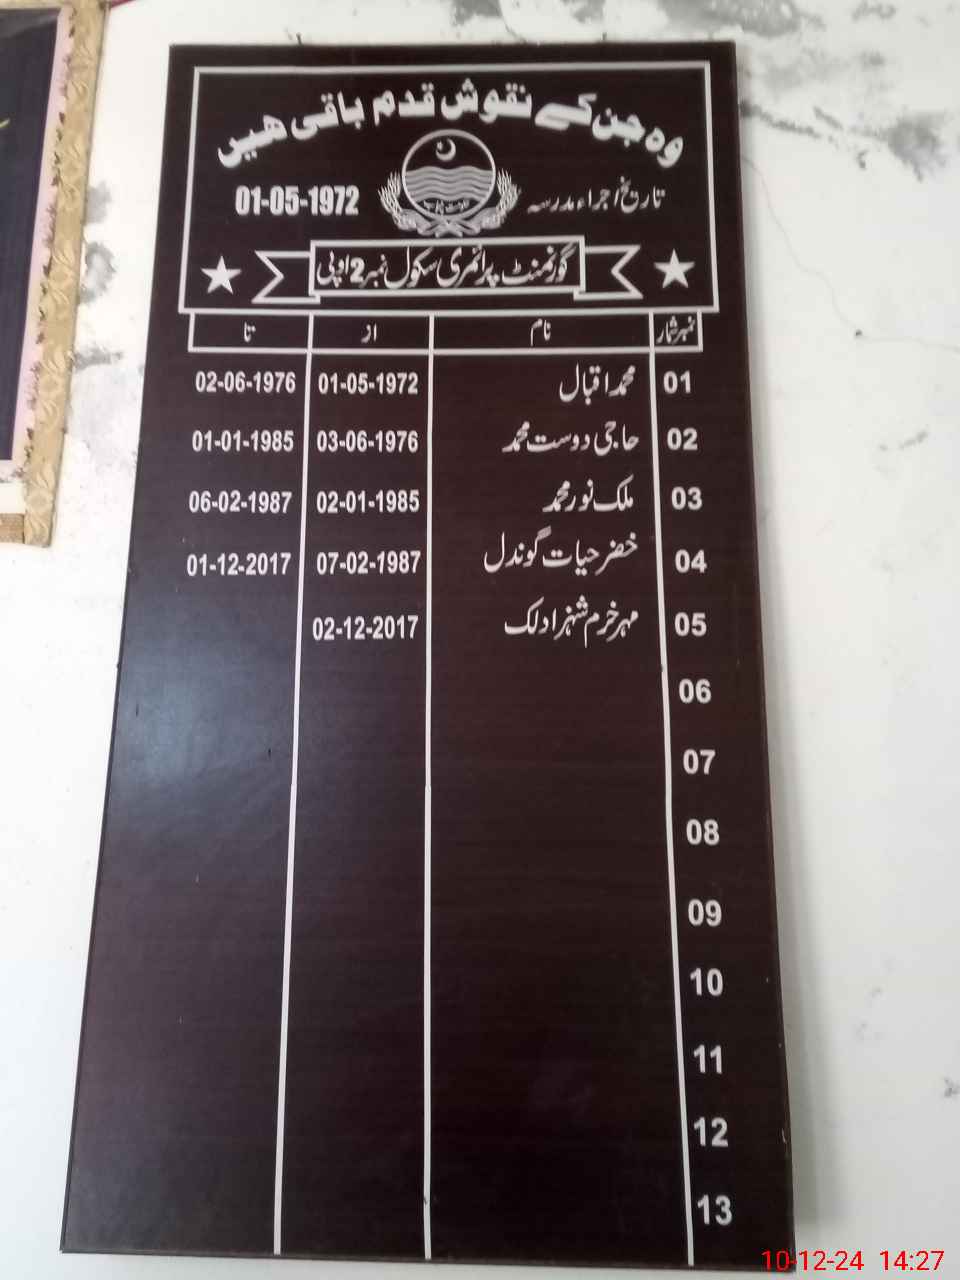 وہ جن کے نقوش قدم باقی ھیں
تاریخ اجراء مدرسہ 01-05-1972
حکومت پنجاب
گورنمنٹ پرائمری سکول نمبر 2 اوپی
نمبر شمار نام از تا
01 محمد اقبال 01-05-1972 02-06-1976
02 حاجی دوست محمد 03-06-1976 01-01-1985
03 ملک نور محمد 02-01-1985 06-02-1987
04 خضر حیات گوندل 07-02-1987 01-12-2017
05 مہر خرم شہزاد لک 02-12-2017
06
07
08
09
10
11
12
13
10-12-24 14:27